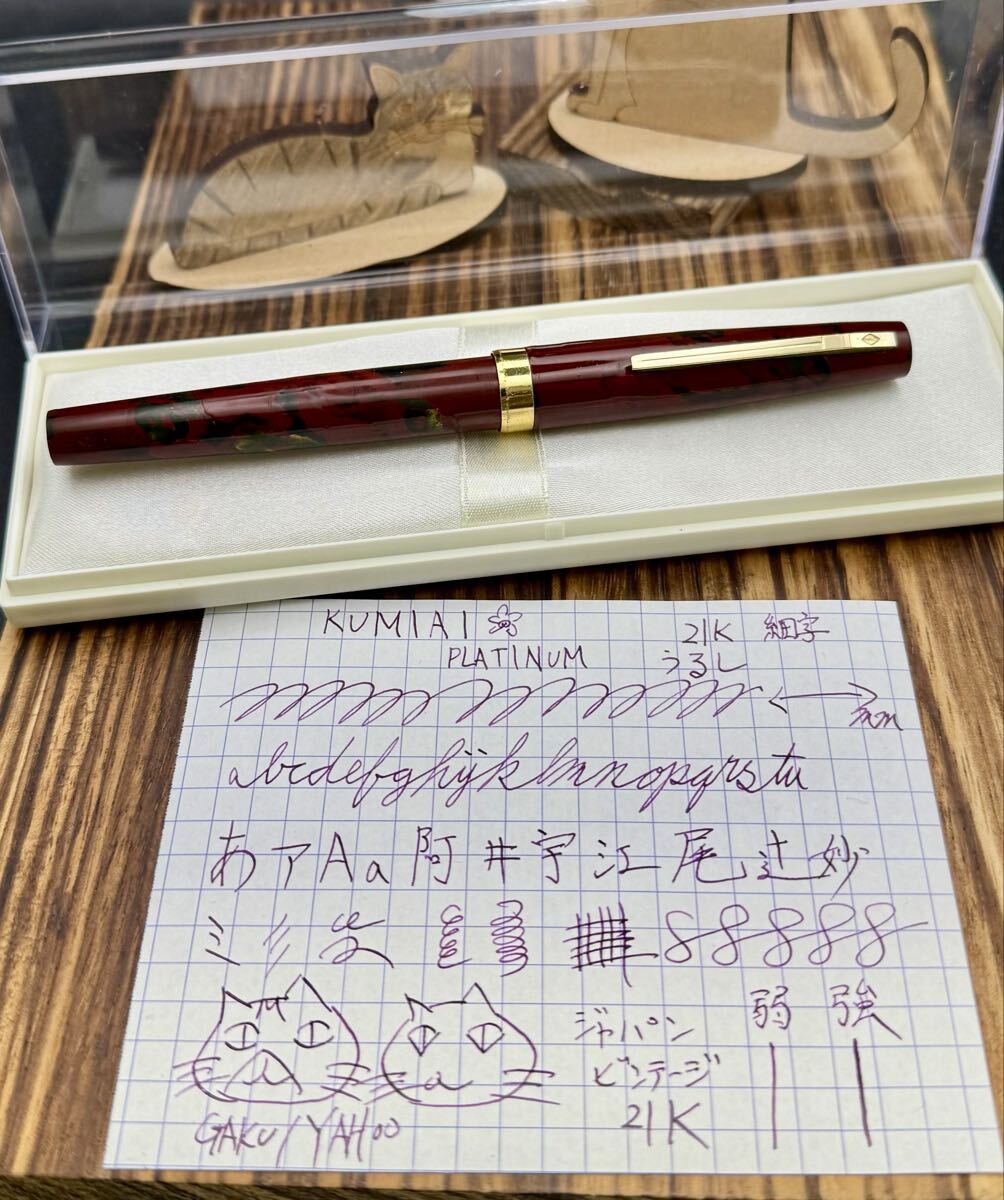 KUMIAI
21K 細字
PLATINUM うるし
abcdefghijklmnopqrstu
あアAa阿井宇江尾辻妙
ミ
88888
弱 強
ジャパン
ビンテージ
21K
GAKU/YAHOO